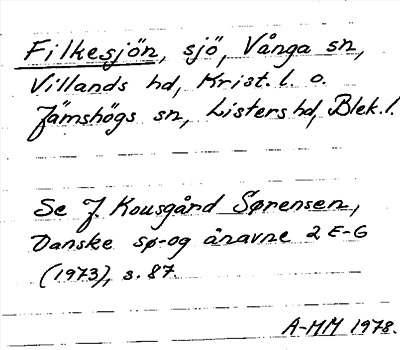 Filkesjön, sjö, Vånga sn,
Villands hd, Krist. l. o.
Jämshögs sn, Listers hd, Blek. l.
Se J. Kousgård Sørensen,
Danske sø- og ånavne 2 E-G
(1973), s. 87.
A-MM 1978.